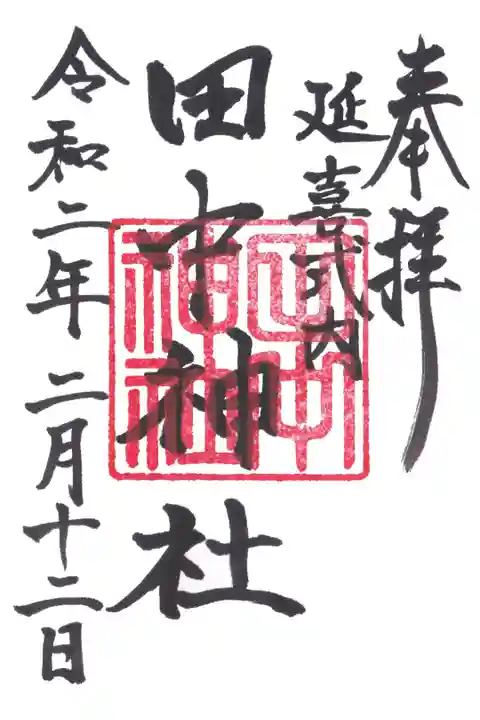 奉拝
延喜式内
田中神社
令和二年二月十二日
田中
神社